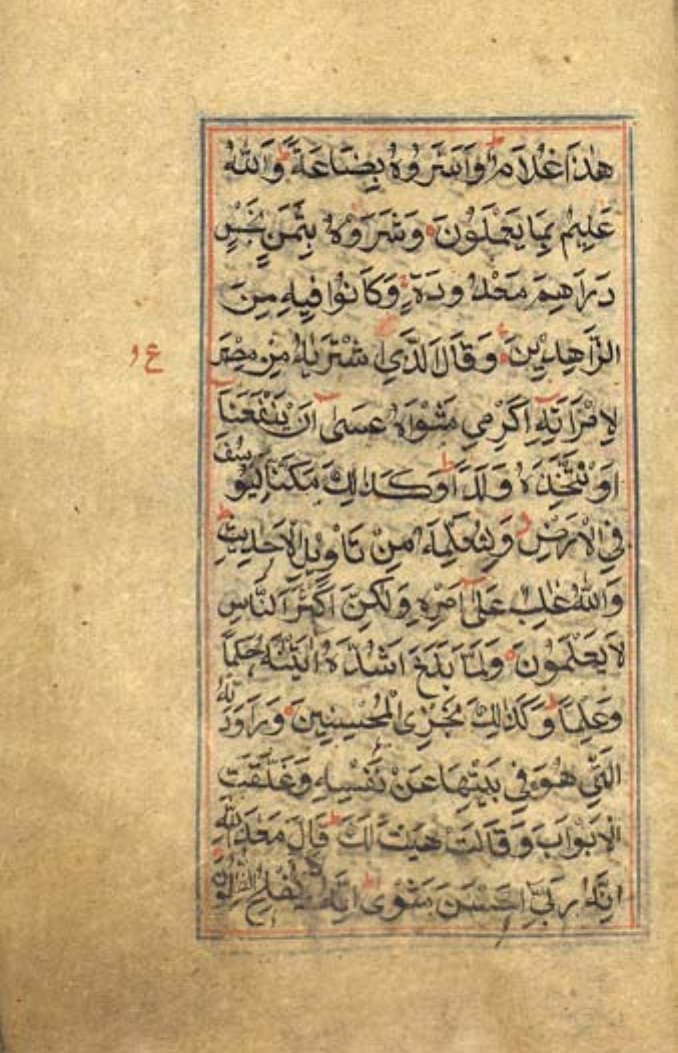 هٰذَا غُلَامٌ وَاَسَرُّوهُ بِضَاعَةً وَاللّٰهُ
عَلِيْمٌ بِمَا يَعْمَلُوْنَ وَشَرَوْهُ بِثَمَنٍ بَخْسٍ
دَرَاهِمَ مَعْدُودَةٍ وَكَانُوا فِيْهِ مِنَ
الزَّاهِدِيْنَ وَقَالَ الَّذِي اشْتَرٰىهُ مِنْ مِصْرَ
لِامْرَاَتِهِ اَكْرِمِي مَثْوٰىهُ عَسٰى اَنْ يَنْفَعَنَا
اَوْ نَتَّخِذَهُ وَلَدًا وَكَذٰلِكَ مَكَّنَّا لِيُوسُفَ
فِي الْاَرْضِ وَلِنُعَلِّمَهُ مِنْ تَاْوِيْلِ الْاَحَادِيْثِ
وَاللّٰهُ غَالِبٌ عَلٰى اَمْرِهِ وَلٰكِنَّ اَكْثَرَ النَّاسِ
لَا يَعْلَمُوْنَ وَلَمَّا بَلَغَ اَشُدَّهُ اٰتَيْنٰهُ حُكْمًا
وَعِلْمًا وَكَذٰلِكَ نَجْزِي الْمُحْسِنِيْنَ وَرَاوَدَتْهُ
الَّتِي هُوَ فِي بَيْتِهَا عَنْ نَفْسِهِ وَغَلَّقَتِ
الْاَبْوَابَ وَقَالَتْ هَيْتَ لَكَ قَالَ مَعَاذَ اللّٰهِ
اِنَّهُ رَبِّي اَحْسَنَ مَثْوَايَ اِنَّهُ لَا يُفْلِحُ الظَّالِمُوْنَ
ع